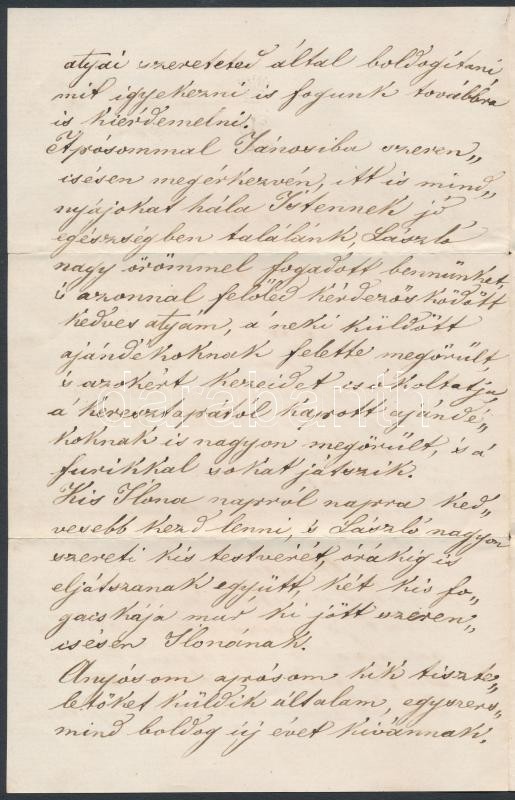 atyai szereteted által boldogítani
mit igyekezni is fogunk továbbra
is kiérdemelni.
Apósommal Jánosiba szeren„
csésen megérkezvén, itt is mind„
nyájokat hála Istennek jó
egészségben találánk, László
nagy örömmel fogadott bennünket,
s azonnal felöled kérdezösködött
kedves atyám, a' neki küldött
ajándékoknak felette megörült,
s azokért kezeidet csókoltatja,
a' keresztapáról kapott ajándé„
koknak is nagyon megörült, s a'
furikkal sokat játszik.
Kis Ilona napról napra ked„
vesebb kezd lenni, s László nagyon
szereti kis testvérét, órákig is
eljátszanak együtt, két kis fo„
gacskája mar ki jött szeren„
csésen Ilonának.
Anyósom apósom kik tiszte„
letöket küldik általam, egyszers„
mind boldog új évet kivánnak.
darabanth